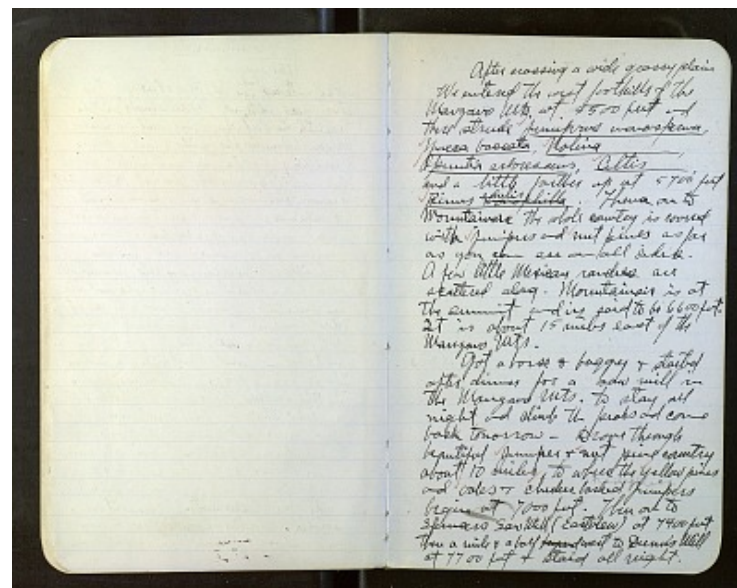 After crossing a wide grassy plain
We entered the west foothills of the
Manzano Mts. at 5500 feet and
there struck Juniperus monosperma,
Yucca baccata, Nolina
Opuntia arborescens, Celtis
and a little farther up at 5700 feet
Pinus edulis. Thence on to
Mountainair the whole country is covered
with junipers and nut pines as far
as you can see on all sides.
A few little Mexican ranches are
scattered along. Mountainair is at
the summit and is said to be 6600 feet.
It is about 15 miles east of the
Manzano Mts.
Got a horse & buggy & started
after dinner for a saw mill in
the Manzano Mts. to stay all
night and climb the peaks and come
back tomorrow - Drove through
beautiful juniper & nut pine country
about 10 miles, to where the yellow pines
and oaks & checker barked junipers
begin at 7000 feet. Then on to
Saw Mill (Eastview) at 7400 feet
then a mile & a half to Mill
at 7700 feet & staid all night.